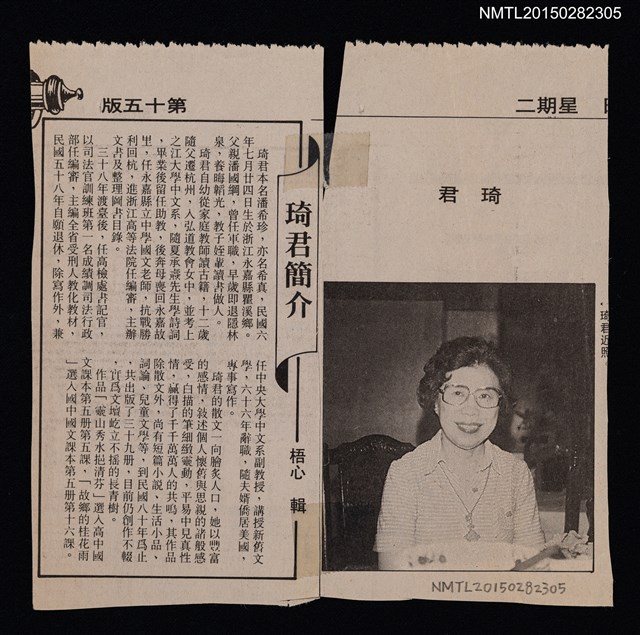 NMTL20150282305
版五十第
二期星
琦君
，琦君近照
琦君簡介
梧心　輯
琦君本名潘希珍，亦名希真，民國六
年七月廿四日生於浙江永嘉縣瞿溪鄉。
父親潘國綱，曾任軍職，早歲即退隱林
泉，養晦韜光，教子姪輩讀書做人。
琦君自幼從家庭教師讀古籍，十二歲
隨父遷杭州，入弘道教會女中，並考上
之江大學中文系，隨夏承燾先生學詩詞
，畢業後留任助教，後奔母喪回永嘉故
里，任永嘉縣立中學國文老師，抗戰勝
利回杭，進浙江高等法院任編審，主辦
文書及整理圖書目錄。
三十八年渡臺後，任高檢處書記官，
以司法官訓練班第一名成績調司法行政
部任編審，主編全省受刑人教化教材，
民國五十八年自願退休，除寫作外，兼
任中央大學中文系副教授，講授新舊文
學，六十六年辭職，隨夫婿僑居美國，
專事寫作。
琦君的散文一向膾炙人口，她以豐富
的感情，敍述個人懷舊與思親的諸般感
受，白描的筆細緻靈動，平易中見真性
情，贏得了千千萬萬人的共鳴，其作品
除散文外，尚有短篇小說、生活小品、
詞論、兒童文學等，到民國八十年爲止
，共出版了三十九册，目前仍創作不輟
，實爲文壇屹立不搖的長青樹。
作品「靈山秀水挹清芬」選入高中國
文課本第五册第五課，「故鄉的桂花雨
」選入國中國文課本第五册第十六課。
NMTL20150282305